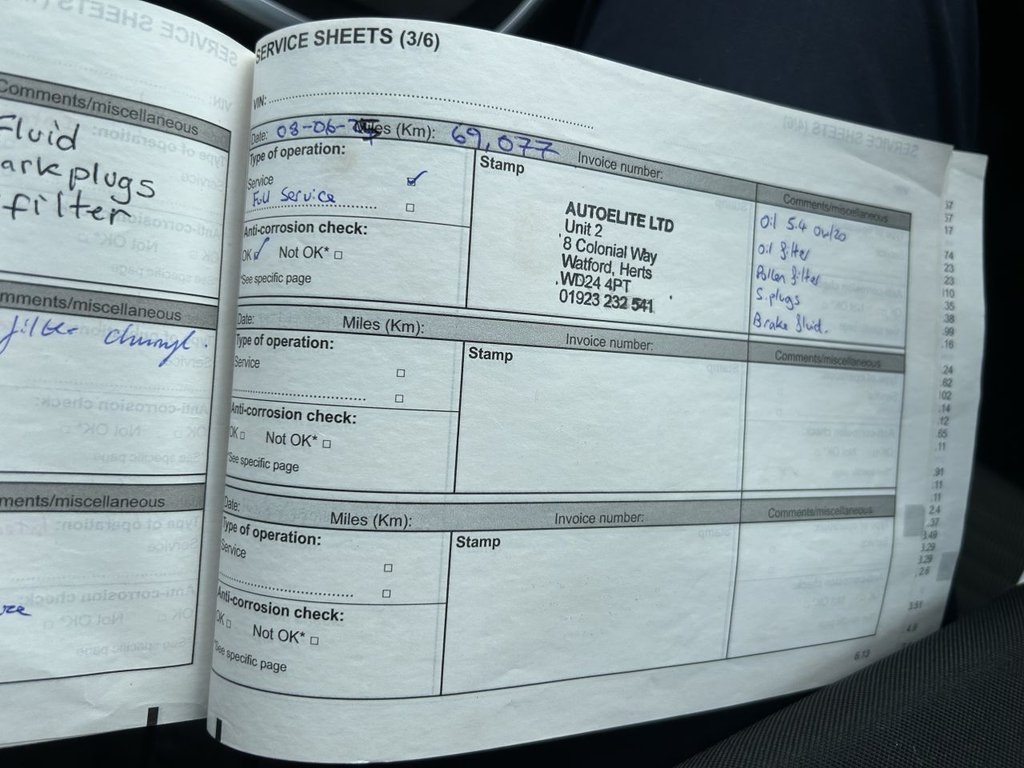 Comments/miscellaneous
Fluid
plugs
filter
filter
SERVICE SHEETS (3/6)
VIN:
Date: 08-06- Miles (Km): 69,077 Invoice number:
Type of operation:
Service
Full Service
Anti-corrosion check:
OK Not OK*
*See specific page
Stamp
AUTOELITE LTD
Unit 2
8 Colonial Way
Watford, Herts
WD24 4PT
01923 232 541
Comments/miscellaneous
Oil 5.4 0w/20
Oil filter
Pollen filter
S.plugs
Brake fluid.
Date: Miles (Km): Invoice number:
Type of operation:
Service
Anti-corrosion check:
OK Not OK*
*See specific page
Stamp
Comments/miscellaneous
Date: Miles (Km): Invoice number:
Type of operation:
Service
Anti-corrosion check:
OK Not OK*
*See specific page
Stamp
Comments/miscellaneous